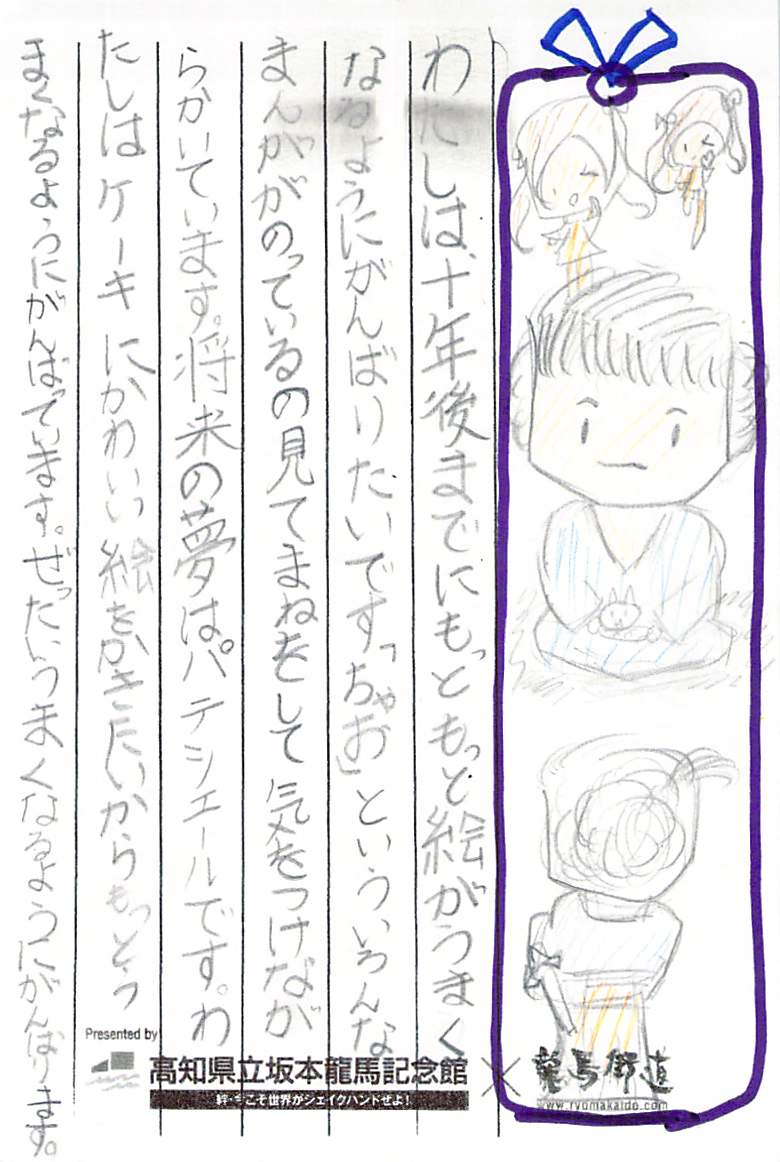 わたしは、十年後までにもっともっと絵がうまく
なるようにがんばりたいです「ちゃお」といういろんな
まんががのっているの見てまねをして気をつけなが
らかいています。将来の夢はパテシエールです。わ
たしはケーキにかわいい絵をかきたいからもっとう
まくなるようにがんばでいます。ぜったいうまくなるようにがんばります。
Presented by
高知県立坂本龍馬記念館
×
龍馬街道
絆・今こそ世界がシェイクハンドぜよ!
www.ryomakaido.com